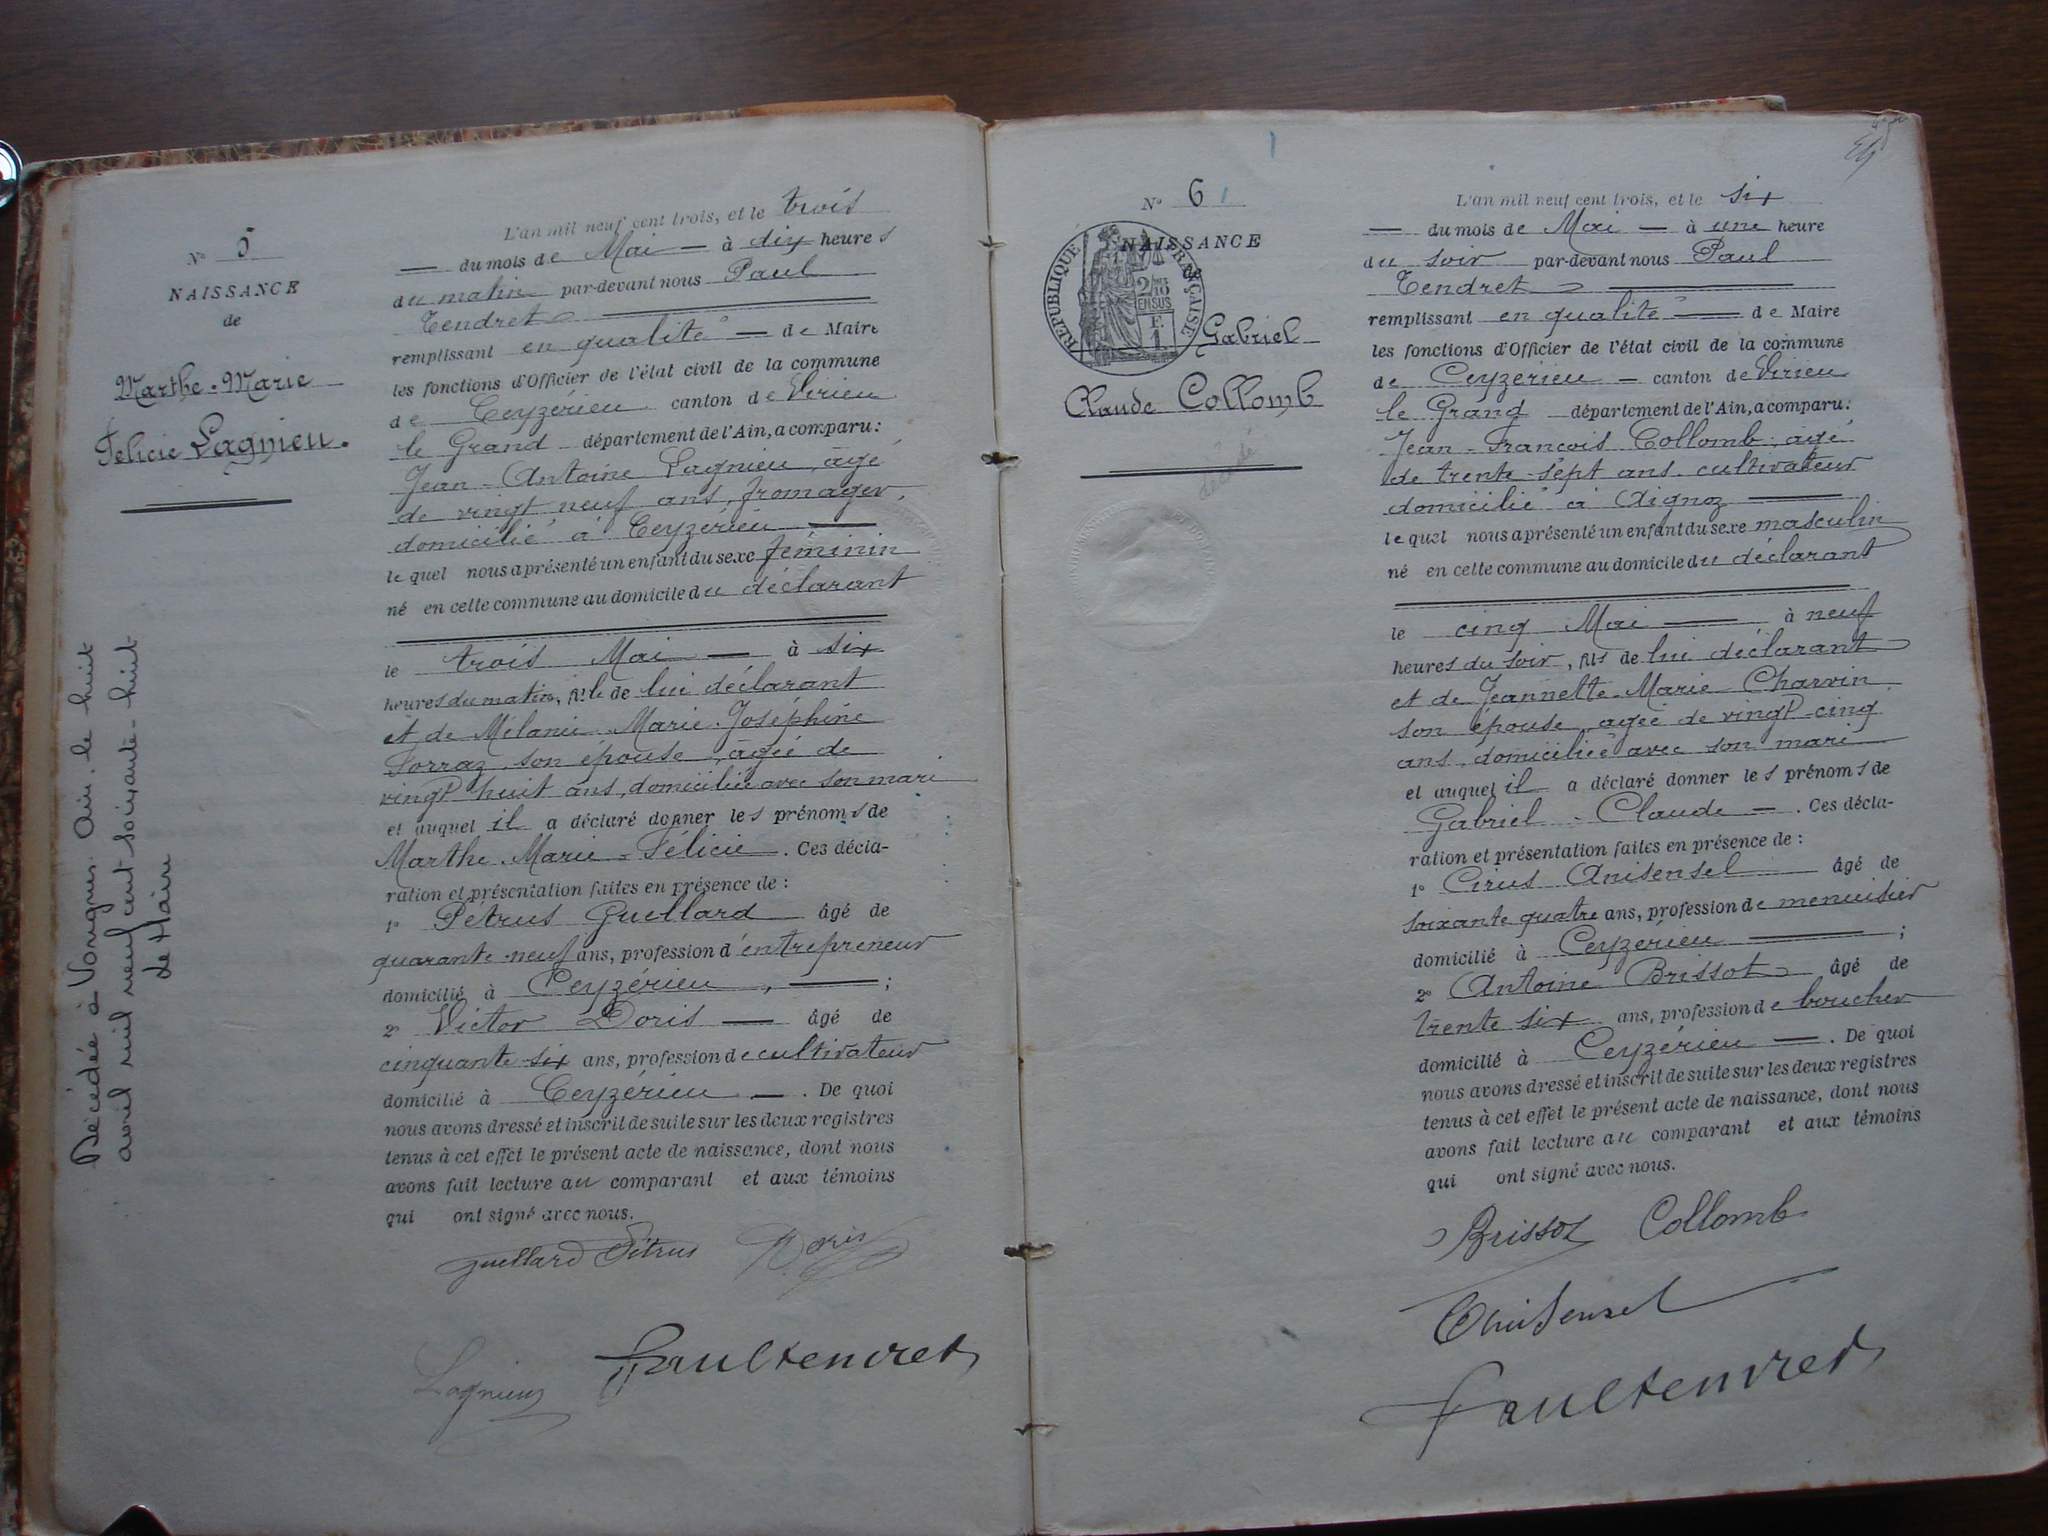 N° 5
NAISSANCE
de
Marthe-Marie
Félicie Lagnieu.
Décédée à Vongnes. Ain. le huit
avril mil neuf cent soixante-huit
L'an mil neuf cent trois, et le trois
du mois de Mai à dix heures
du matin par-devant nous Paul
Tendret
remplissant en qualité de Maire
les fonctions d'Officier de l'état civil de la commune
de Ceyzérieu canton de Virieu
le Grand département de l'Ain, a comparu:
Jean-Antoine Lagnieu, âgé
de vingt neuf ans, fromager,
domicilié à Ceyzérieu
lequel nous a présenté un enfant du sexe féminin
né en cette commune au domicile du déclarant
le trois Mai à six
heures du matin, fille de lui déclarant
et de Mélanie-Marie-Joséphine
son épouse, âgée de
vingt-huit ans, domiciliée avec son mari
et auquel il a déclaré donner les prénoms de
Marthe-Marie-Félicie. Ces décla-
ration et présentation faites en présence de :
1° Pétrus Guellard âgé de
quarante-neuf ans, profession d'entrepreneur
domicilié à Ceyzérieu, ;
2° Victor Doris âgé de
cinquante-six ans, profession de cultivateur
domicilié à Ceyzérieu. De quoi
nous avons dressé et inscrit de suite sur les deux registres
tenus à cet effet le présent acte de naissance, dont nous
avons fait lecture au comparant et aux témoins
qui ont signé avec nous.
Guellard Pétrus Doris
Lagnieu Paul Tendret
N° 6
NAISSANCE
RÉPUBLIQUE FRANÇAISE
2/10 EN SUS
F.
1
Gabriel
Claude Collomb
décédé
L'an mil neuf cent trois, et le six
du mois de Mai à une heure
du soir par-devant nous Paul
Tendret
remplissant en qualité de Maire
les fonctions d'Officier de l'état civil de la commune
de Ceyzerieu canton de Virieu
le Grand département de l'Ain, a comparu:
Jean-François Collomb, agé
de trente-sept ans, cultivateur
domicilié à Aignoz
lequel nous a présenté un enfant du sexe masculin
né en cette commune au domicile du déclarant
le cinq Mai à neuf
heures du soir, fils de lui déclarant
et de Jeannette-Marie Charvin
son épouse, agée de vingt-cinq
ans, domiciliée avec son mari
et auquel il a déclaré donner les prénoms de
Gabriel-Claude. Ces décla-
ration et présentation faites en présence de :
1° Cirus Anisensel âgé de
soixante quatre ans, profession de menuisier
domicilié à Ceyzérieu ;
2° Antoine Brissot âgé de
trente six ans, profession de boucher
domicilié à Ceyzérieu. De quoi
nous avons dressé et inscrit de suite sur les deux registres
tenus à cet effet le présent acte de naissance, dont nous
avons fait lecture au comparant et aux témoins
qui ont signé avec nous.
Brissot Collomb
Anisensel
Paul Tendret